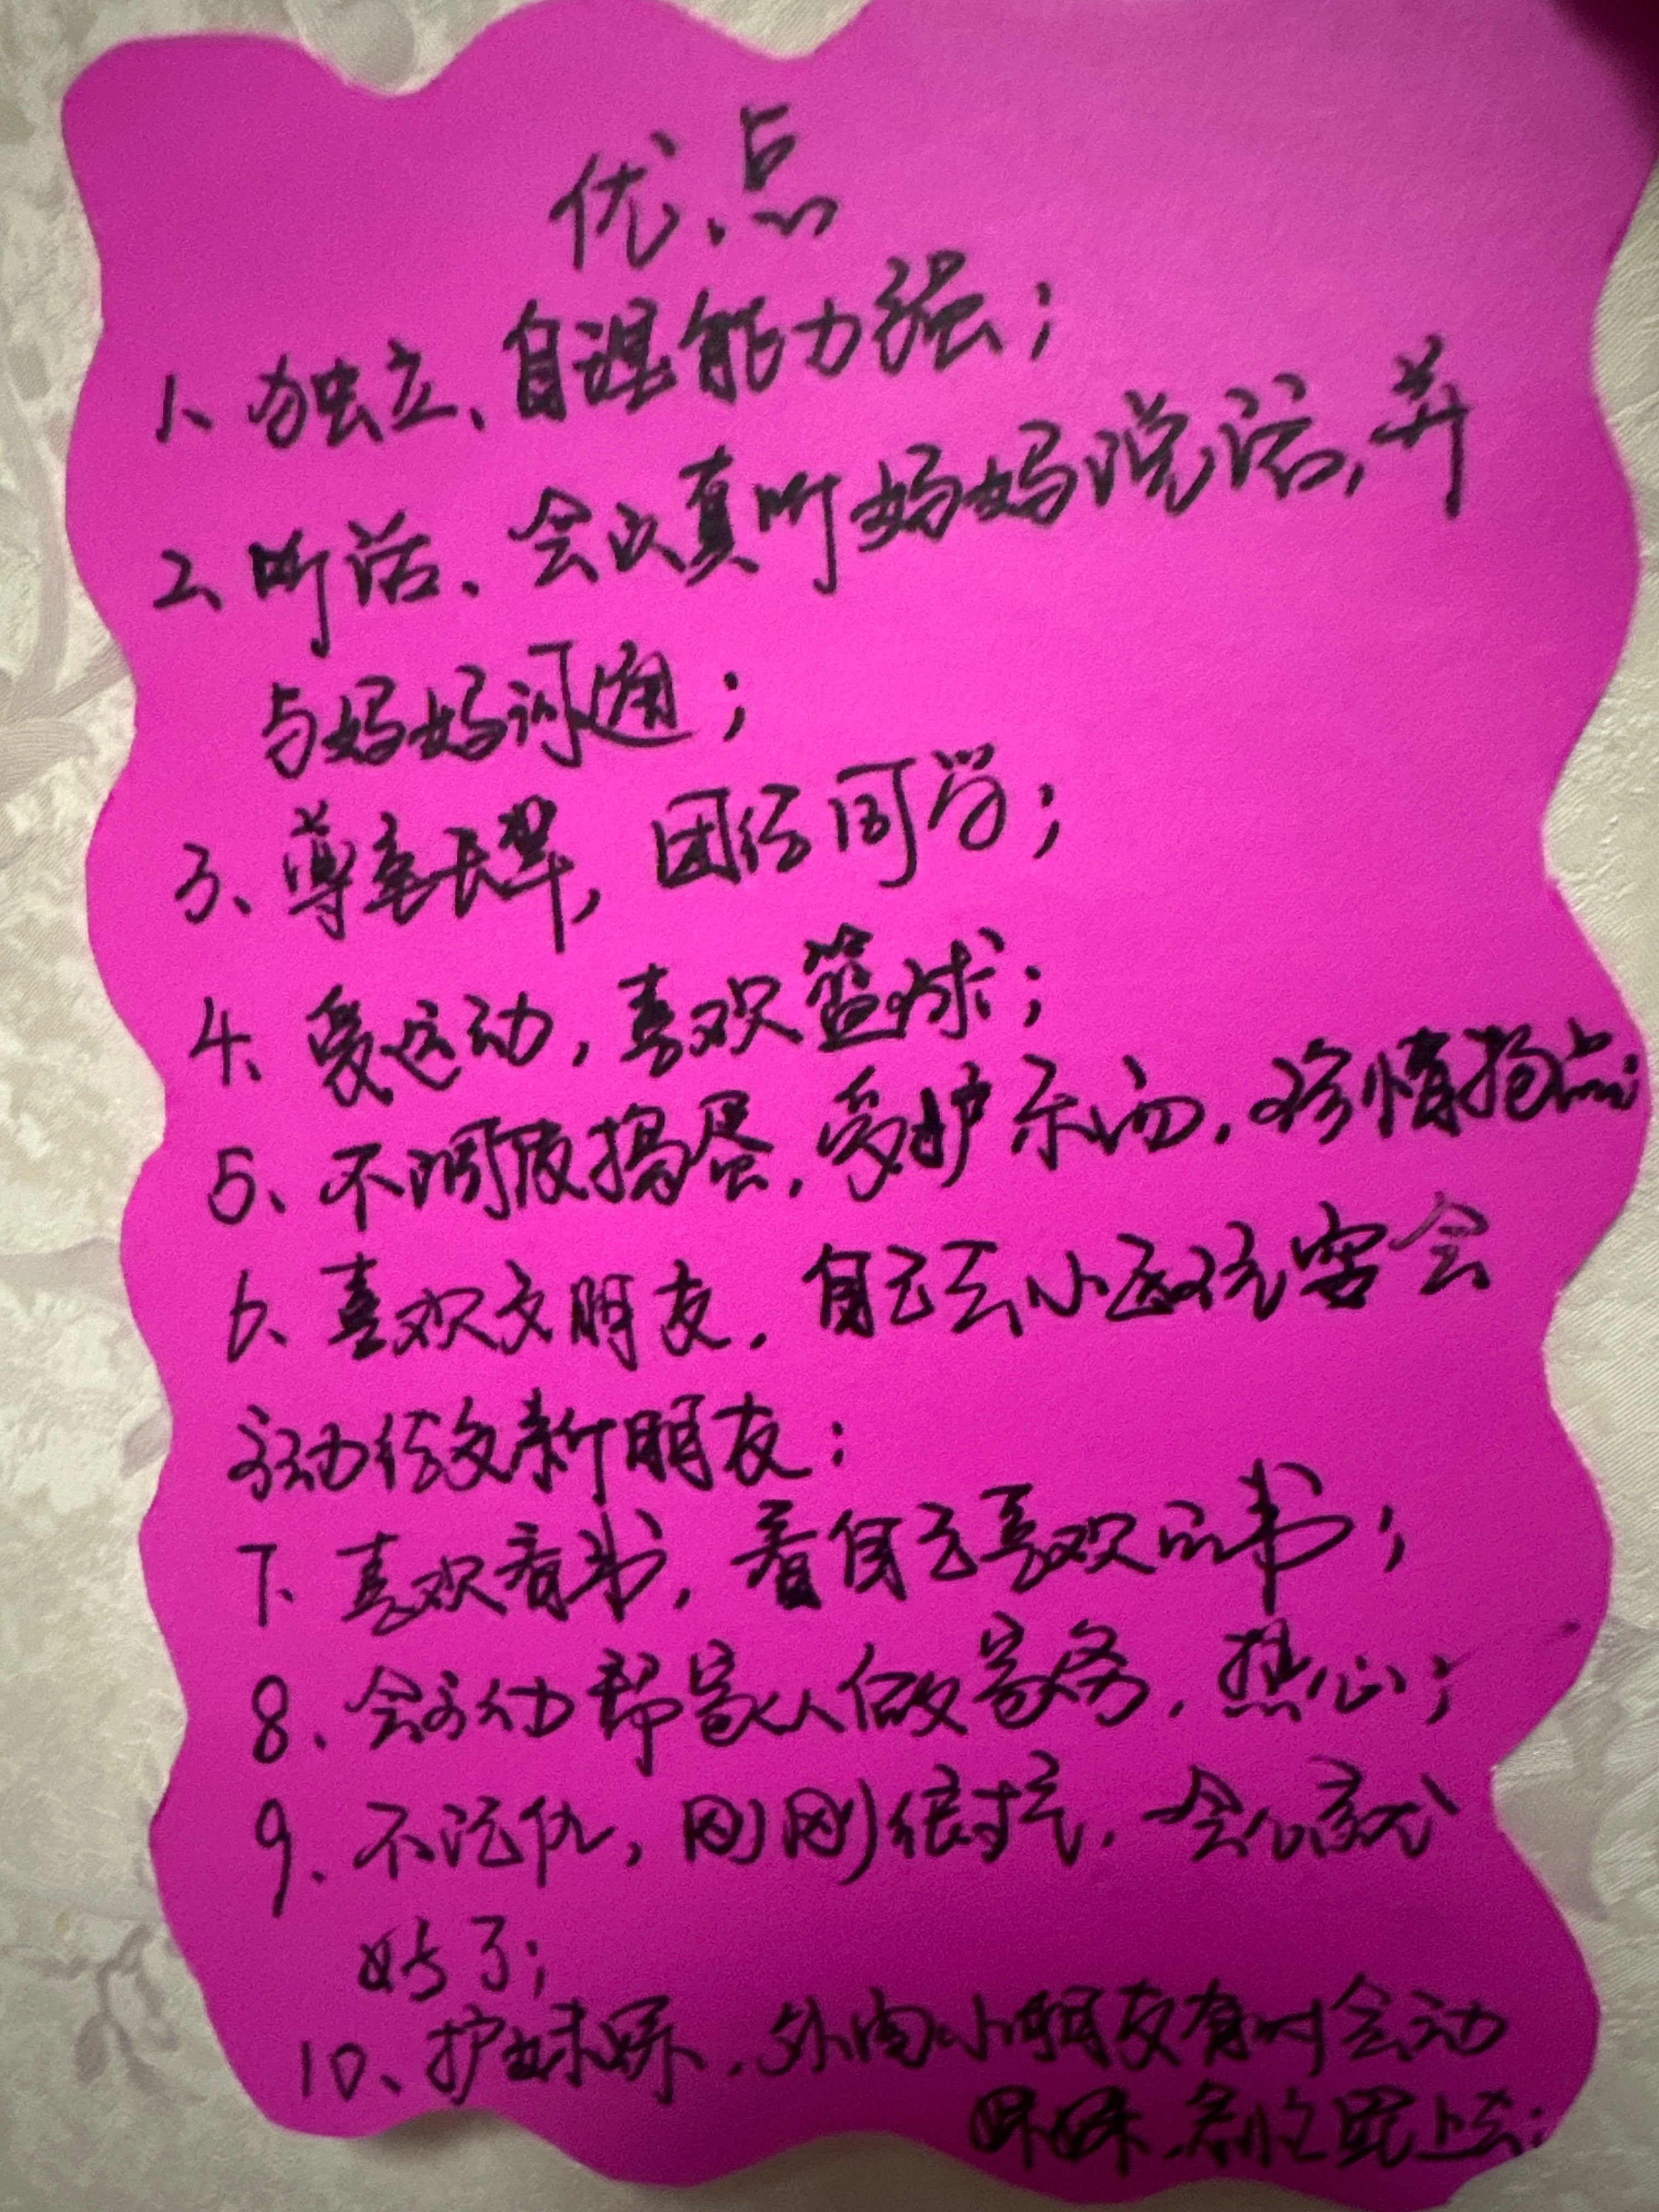 优点
1、独立、自理能力强；
2、听话、会认真听妈妈说话，并
与妈妈沟通；
3、尊重长辈，团结同学；
4、爱运动，喜欢篮球；
5、不调皮捣蛋，爱护动物，珍惜
6、喜欢交朋友，自己去小区玩常会
主动结交新朋友；
7、喜欢看书，看自己喜欢的书；
8、会主动帮家人做家务，热心；
9、不记仇，刚刚很生气，一会儿就
好了；
10、护妹妹，外面小朋友有时会动
妹妹，上去；